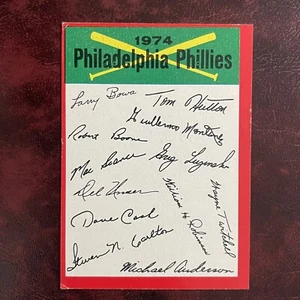 1974
Philadelphia Phillies
Larry Bowa
Tom Hutton
Guillermo Montanez
Robert Boone
Greg Luzinski
Del Unser
Wayne Twitchell
William H Robinson
Dave Cash
Steven N. Carlton
Michael Anderson